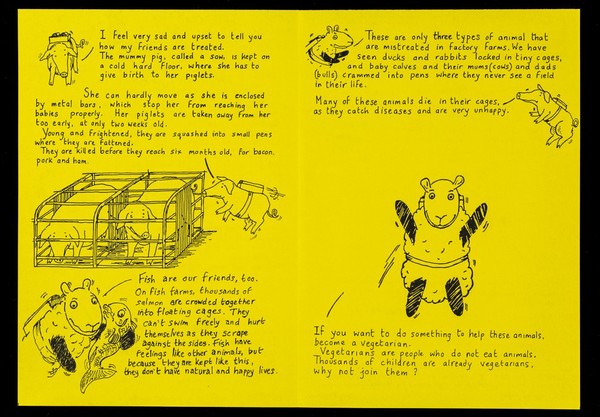 I feel very sad and upset to tell you
how my friends are treated.
The mummy pig, called a sow, is kept on
a cold hard floor, where she has to
give birth to her piglets.
She can hardly move as she is enclosed
by metal bars, which stop her from reaching her
babies properly. Her piglets are taken away from her
too early, at only two weeks old.
Young and frightened, they are squashed into small pens
where they are fattened.
They are killed before they reach six months old, for bacon,
pork and ham.
Fish are our friends, too.
On fish farms, thousands of
salmon are crowded together
into floating cages. They
can't swim freely and hurt
themselves as they scrape
against the sides. Fish have
feelings like other animals, but
because they are kept like this,
they don't have natural and happy lives.
These are only three types of animal that
are mistreated in factory farms. We have
seen ducks and rabbits locked in tiny cages,
and baby calves and their mums (cows) and dads
(bulls) crammed into pens where they never see a field
in their life.
Many of these animals die in their cages,
as they catch diseases and are very unhappy.
If you want to do something to help these animals,
become a vegetarian.
Vegetarians are people who do not eat animals.
Thousands of children are already vegetarians,
why not join them?